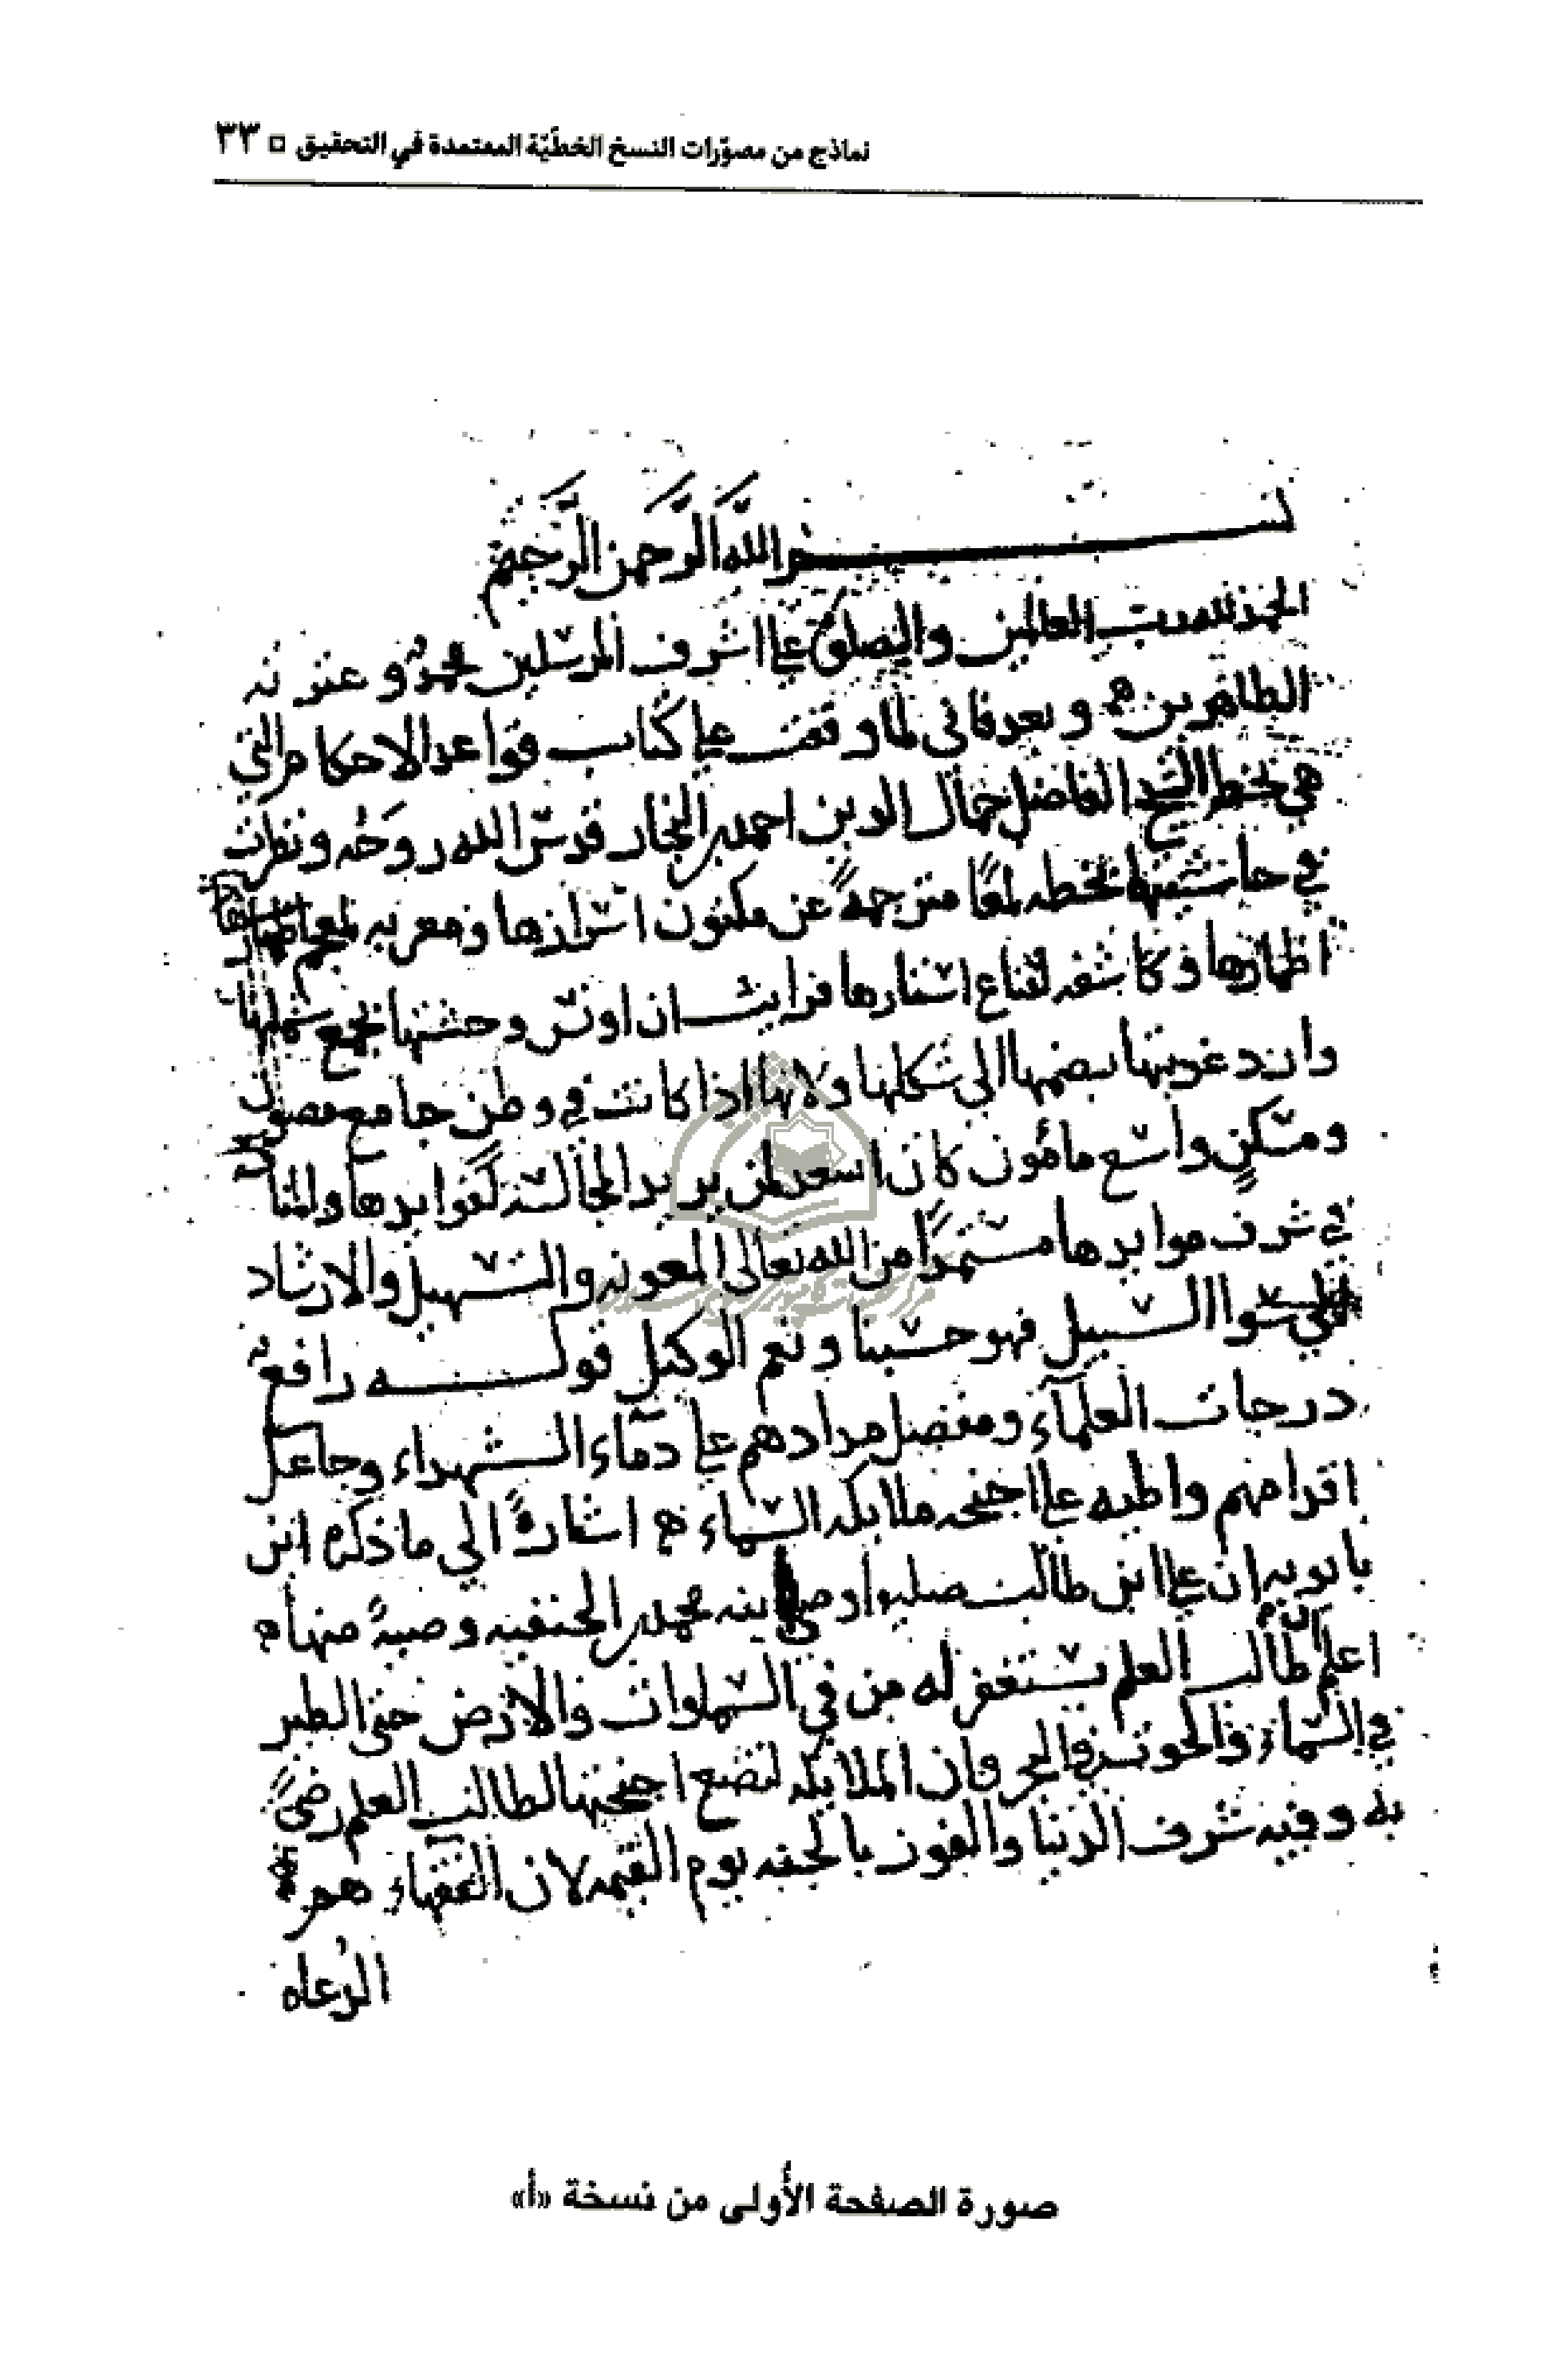 نماذج من مصوّرات النسخ الخطّيّة المعتمدة في التحقيق ٣٣
بسم الله الرحمن الرحيم
الحمد لله رب العالمين والصلوة على اشرف المرسلين محمد و عترته
الطاهرين و بعد فانى لما وقفت على كتاب قواعد الاحكام التي
هي بخط الشيخ الفاضل جمال الدين احمد بن النجار قدس الله روحه و نظرت
في حاشيتها بخطه لمعا مترجمة عن مكنون اسرارها ومعربه لمعاجم
اظهارها و كاشفه لقناع استارها فرايت ان اونس وحشتها بجمع شملها
وان ارد غربتها بضمها الي شكلها ولانها اذا كانت في وطن جامع مصون
ومسكن واسع مأمون كان اسعد لمن يريد المجالسة لفوايدها
في شرف موايدها مستمدا من الله تعالى المعونه والتسهيل والارشاد
الي سوا السبيل فهو حسبنا ونعم الوكيل قوله رافع
درجات العلمآء ومفضل مدادهم على دمآء الشهداء وجاعل
اقدامهم واطيه على اجنحه ملايكه السماء اشارة الي ما ذكره ابن
بابويه ان علي ابن طالب صلي اوصى ابنه محمد بن الحنفيه وصية منها
اعلم ان طالب العلم يستغفر له من في السماوات والارض حتى الطير
في السماء والحوت في البحر وان الملايكه لتضع اجنحتها لطالب العلم رضىً
به وفيه شرف الدنيا والفوز بالجنه يوم القيمه لان الفقهاء هم
الدعاه
صورة الصفحة الأولى من نسخة «أ»